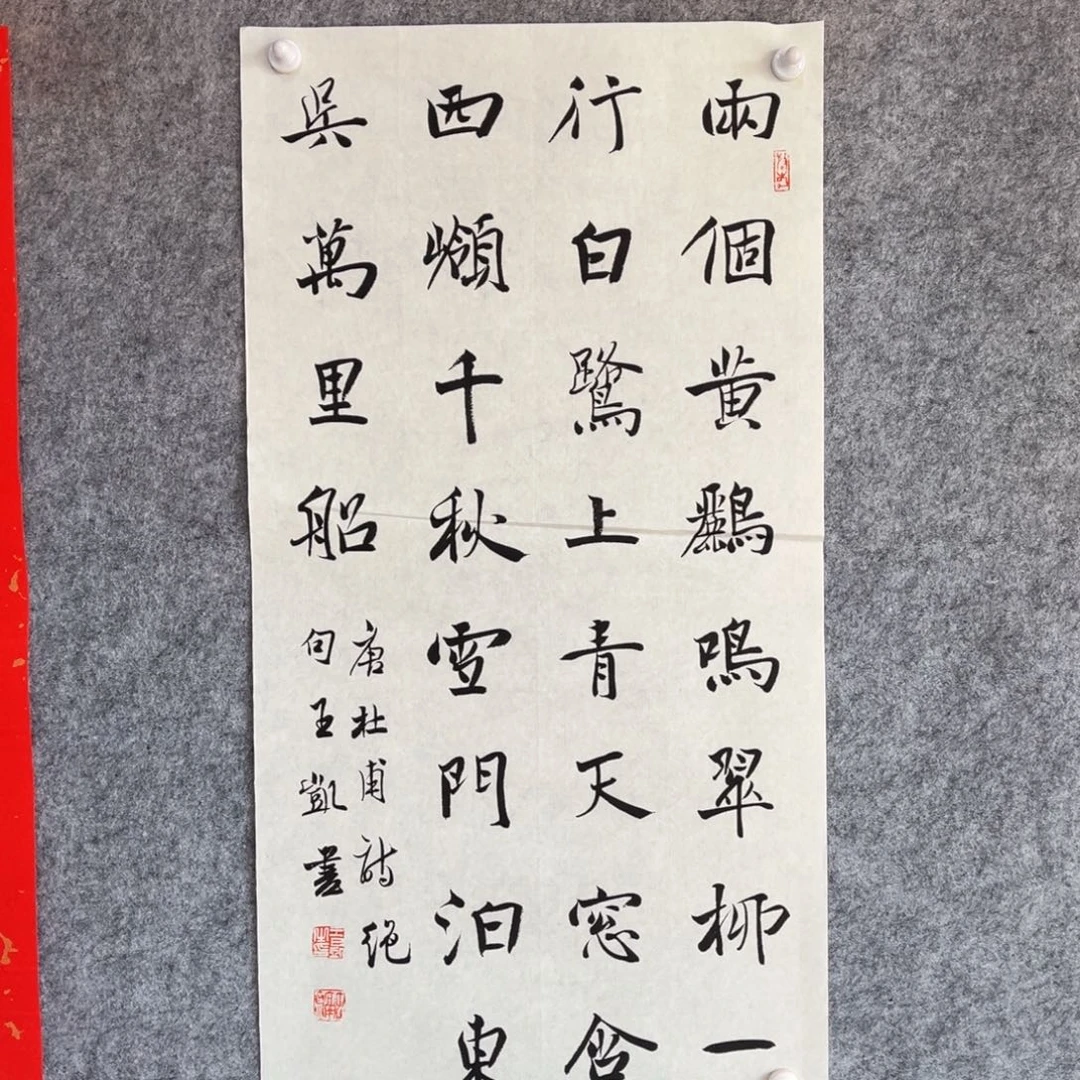 兩個黄鸝鳴翠柳一
行白鷺上青天窓含
西嶺千秋雪門泊東
吳萬里船
唐杜甫詩絕
句王凱書